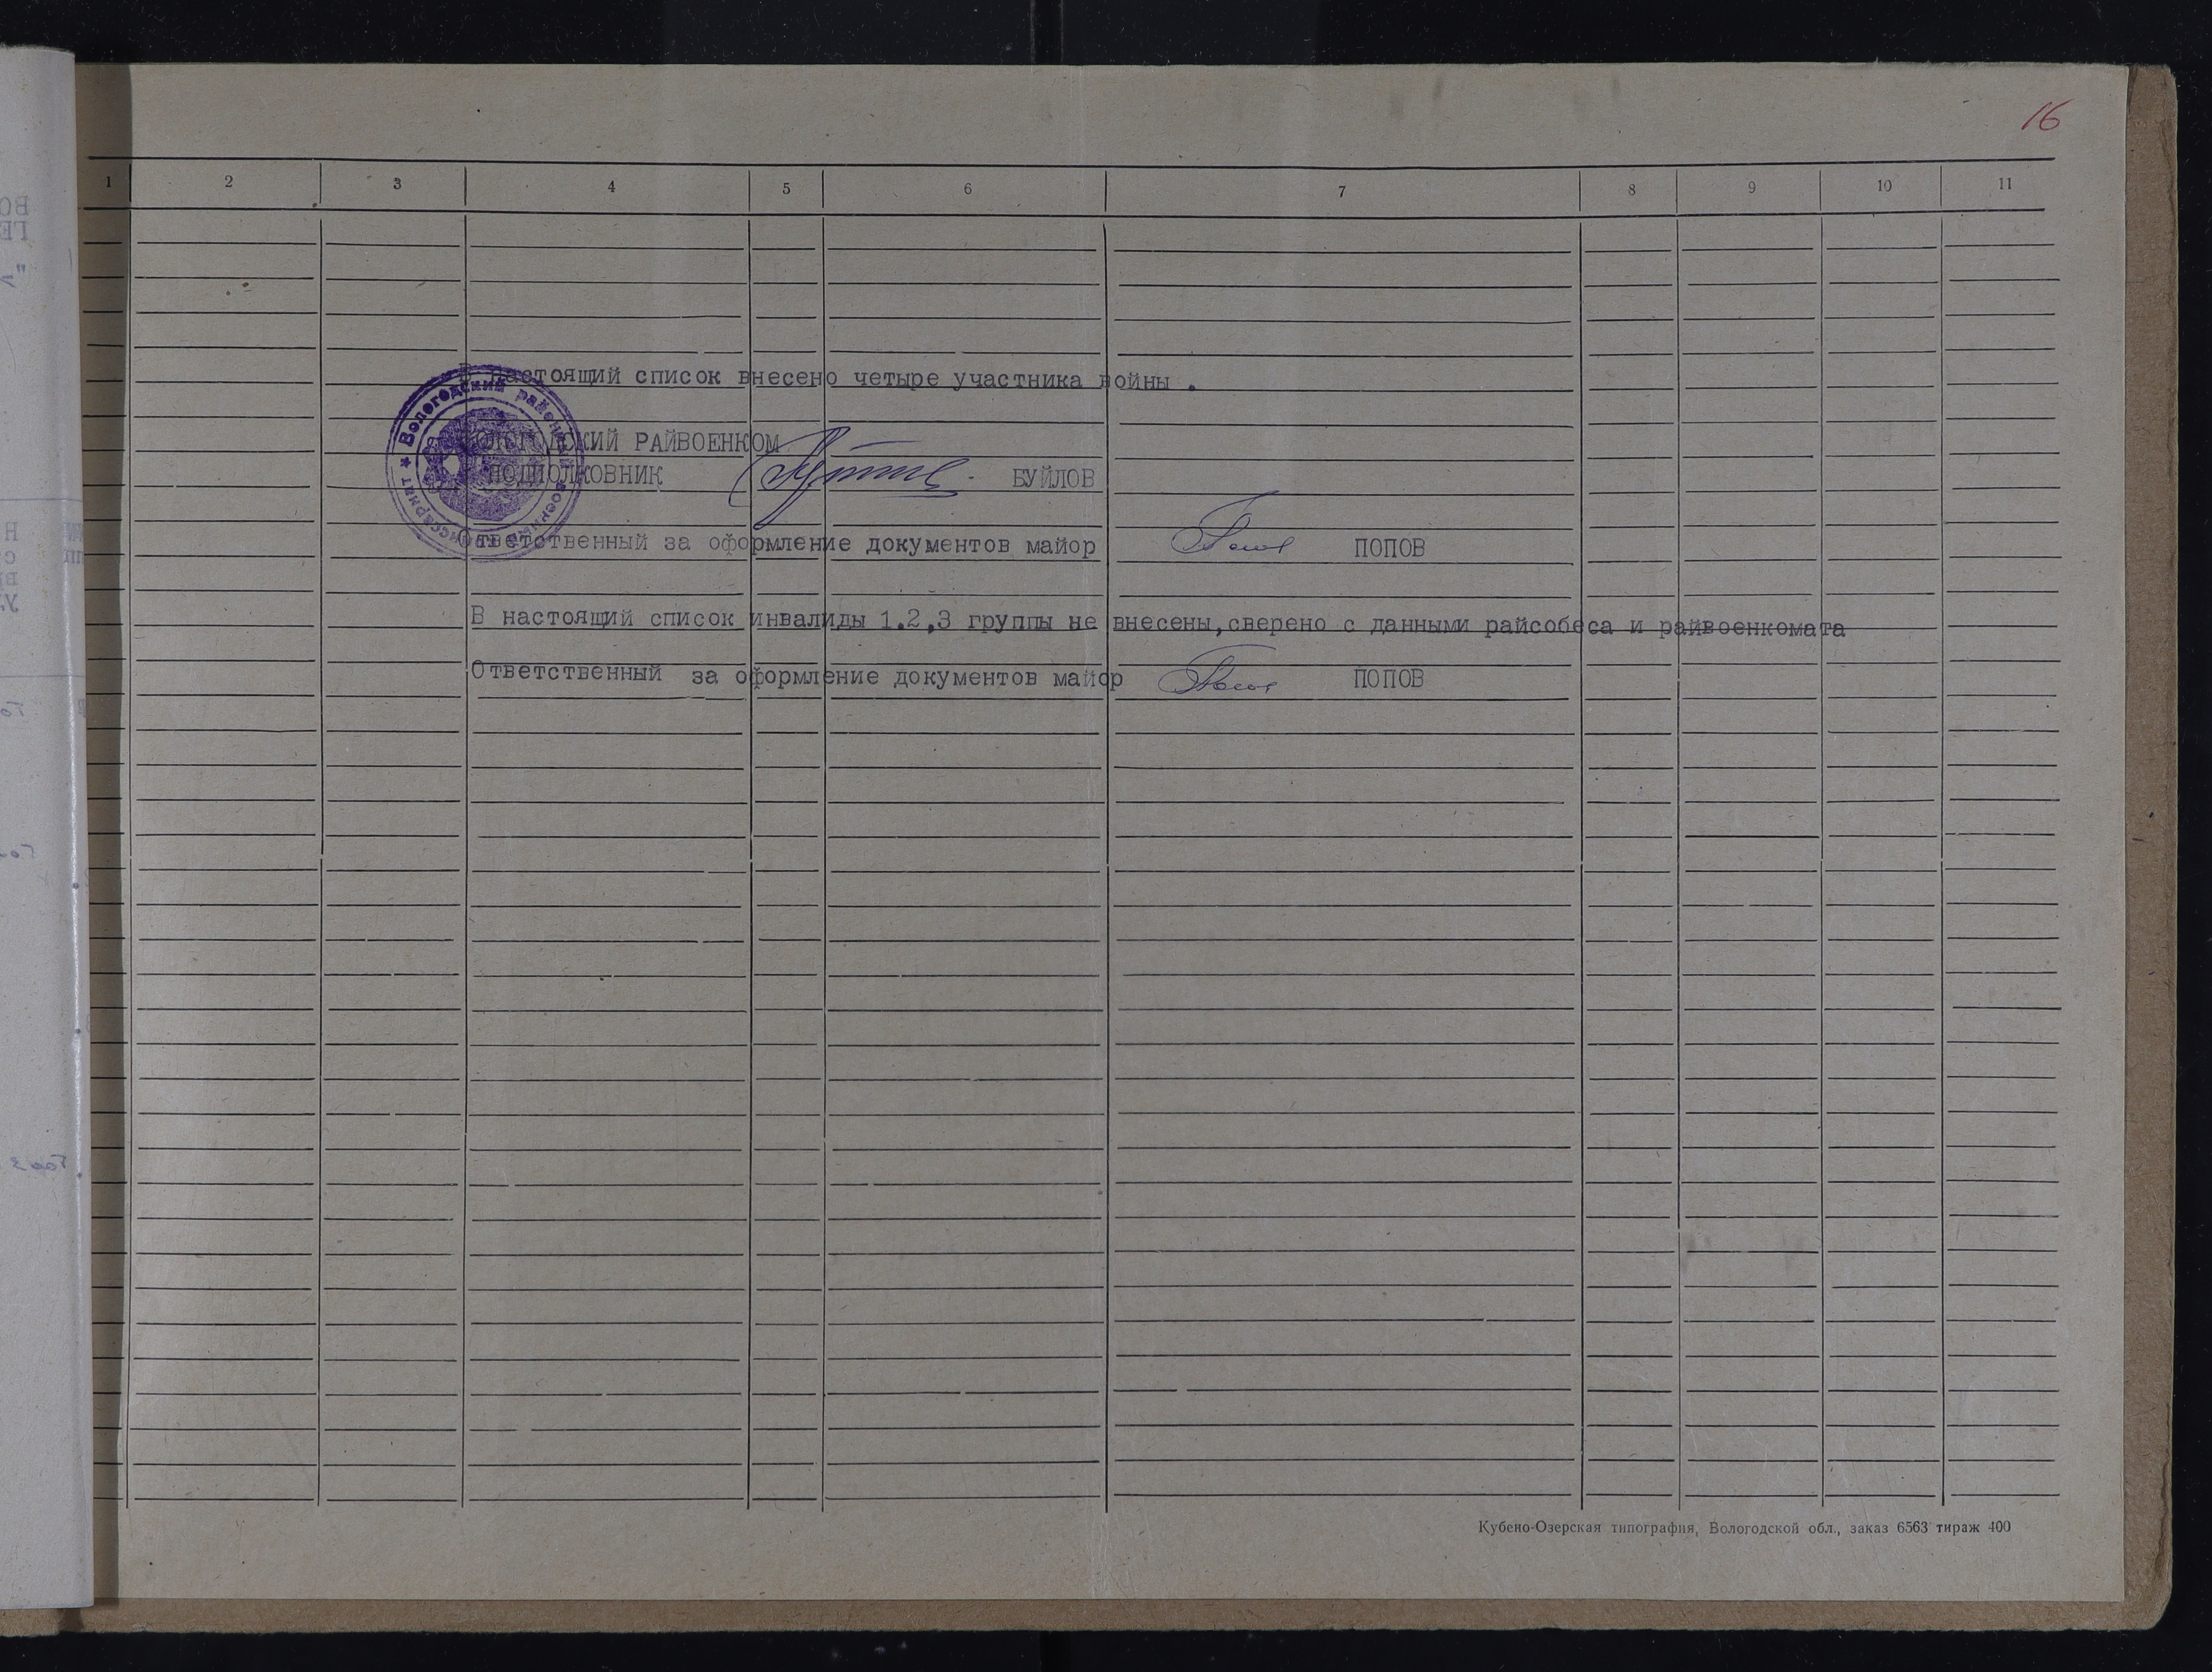 16
1 2 3 4 5 6 7 8 9 10 11
В настоящий список внесено четыре участника войны .
ВОЛОГОДСКИЙ РАЙВОЕНКОМ
ПОДПОЛКОВНИК БУЙЛОВ
Вологодский районный военный комиссариат
Ответственный за оформление документов майор ПОПОВ
В настоящий список инвалиды 1.2,3 группы не внесены,сверено с данными райсобеса и райвоенкомата
Ответственный за оформление документов майор ПОПОВ
Кубено-Озерская типография, Вологодской обл., заказ 6563 тираж 400